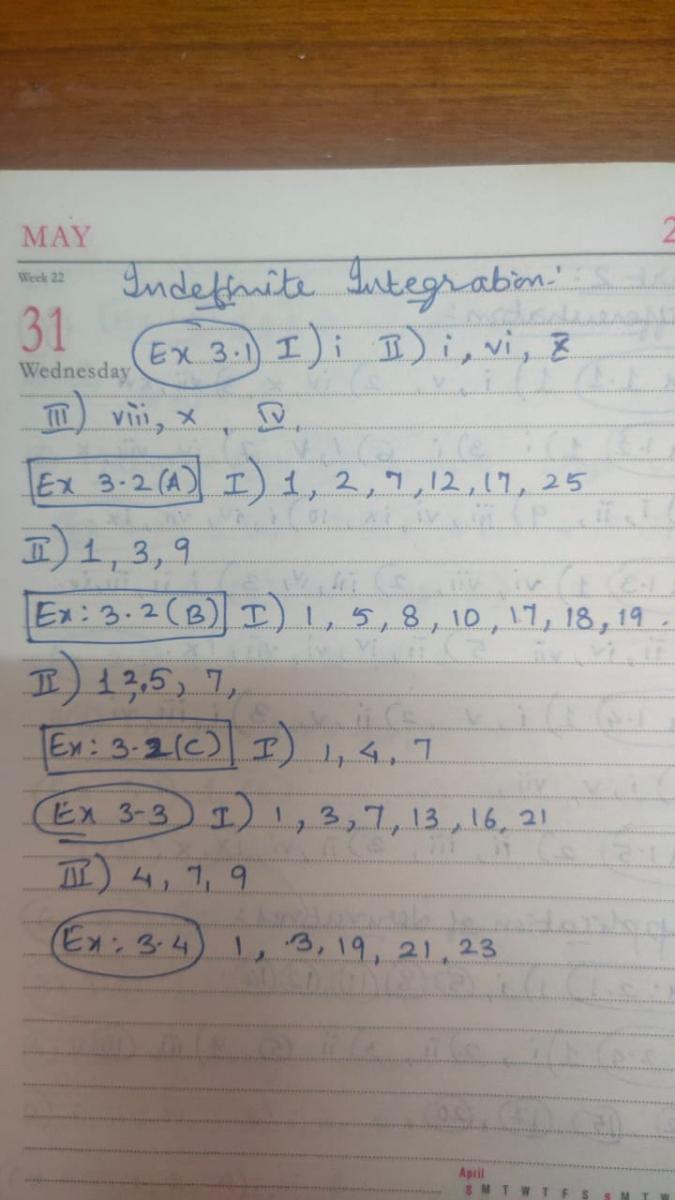 MAY 2
Week 22
Indefinite Integration:
31
Wednesday
Ex 3.1 I) i II) i, vi, x
III) viii, x, IV.
Ex 3.2(A) I) 1, 2, 7, 12, 17, 25
II) 1, 3, 9
Ex: 3.2(B) I) 1, 5, 8, 10, 17, 18, 19.
II) 1 2, 5, 7,
Ex: 3.2(C) I) 1, 4, 7
Ex 3-3 I) 1, 3, 7, 13, 16, 21
III) 4, 7, 9
Ex: 3.4 1, 3, 19, 21, 23
April
S M T W T F S S M T W